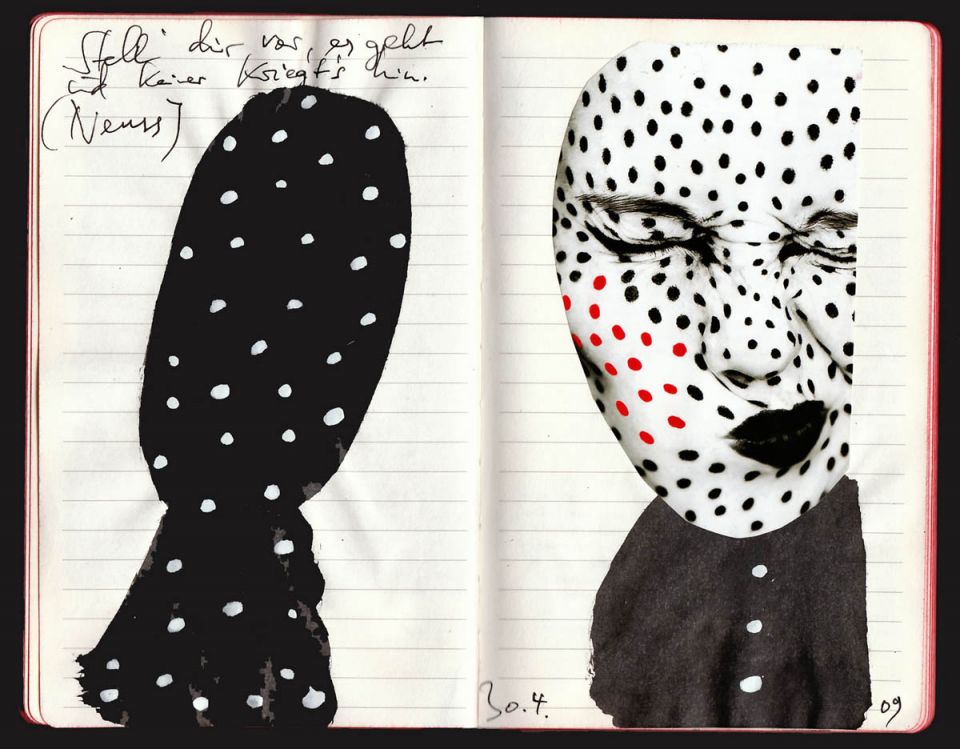 Stell' dir vor, es geht
und keiner kriegt's hin.
(Neuss)
30.4.
09